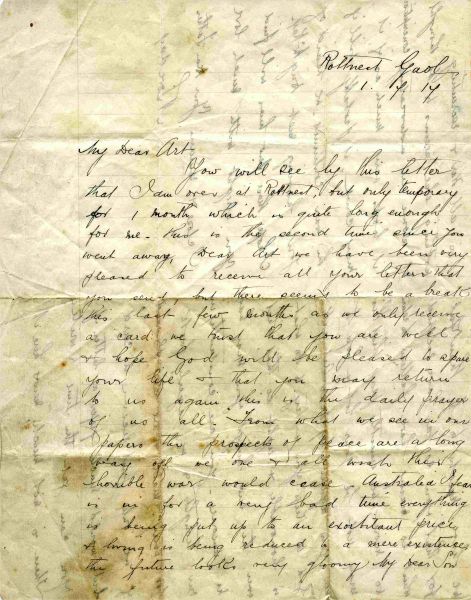 Rottnest Gaol
1. 7. 17
My Dear Art
You will see by this letter
that I am over at Rottnest, but only temporary
for 1 month which is quite long enough
for me. this is the second time since you
went away. Dear Art we have been very
pleased to receive all your letters that
you send but there seems to be a break
this last few months as we only receive
a card we trust that you are well
& hope God will be pleased to spare
your life & that you may return
to us again this is the daily prayer
of us all. From what we see in our
papers the prospects of peace are a long
way off we one & all wish this
horrible war would cease. Australia I fear
is in for a very bad time everything
is being put up to an exorbitant price
& living is being reduced to a mere existence
the future looks very gloomy My dear Son